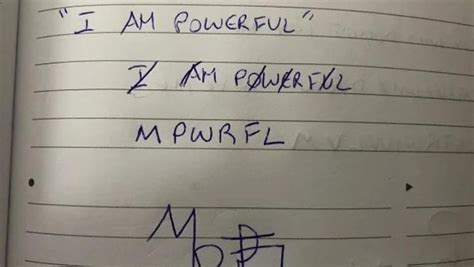 "I AM POWERFUL"
I AM POWERFUL
MPWRFL